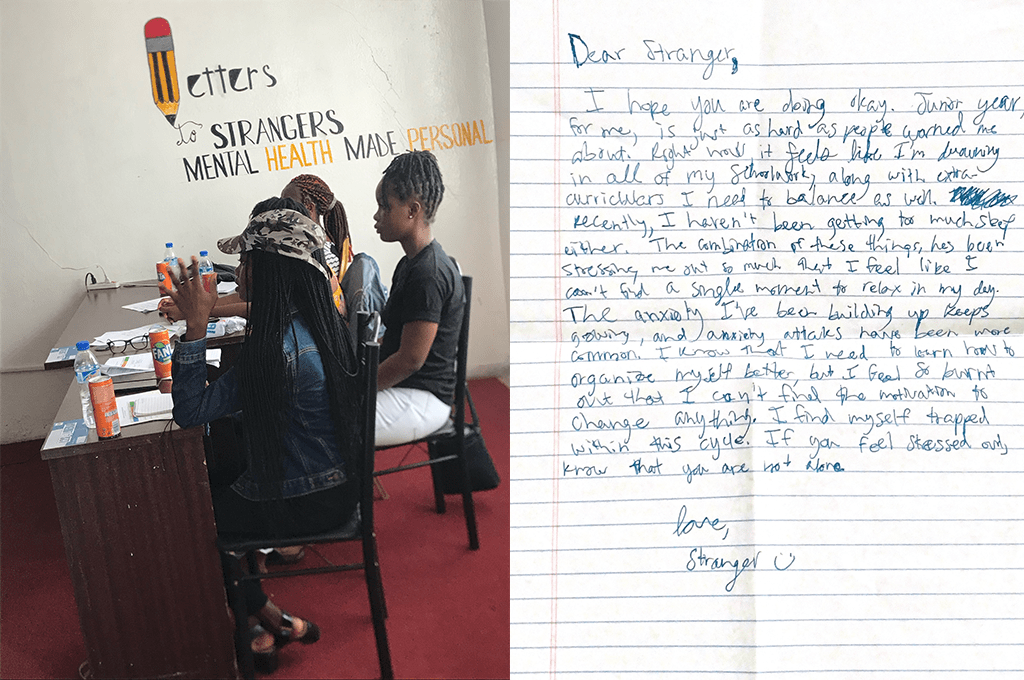 Letters
to STRANGERS
MENTAL HEALTH MADE PERSONAL
FANTA
Dear Stranger,
I hope you are doing okay. Junior year,
for me, is just as hard as people warned me
about. Right now it feels like I'm drowning
in all of my schoolwork, along with extra-
curriculars I need to balance as well.
recently, I haven't been getting to much sleep
either. The combination of these things, has been
stressing me out so much that I feel like I
can't find a single moment to relax in my day.
The anxiety I've been building up keeps
growing, and anxiety attacks have been more
common. I know that I need to learn how to
organize myself better, but I feel so burnt
out that I can't find the motivation to
change anything. I find myself trapped
within this cycle. If you feel stressed out,
know that you are not alone.
love,
Stranger